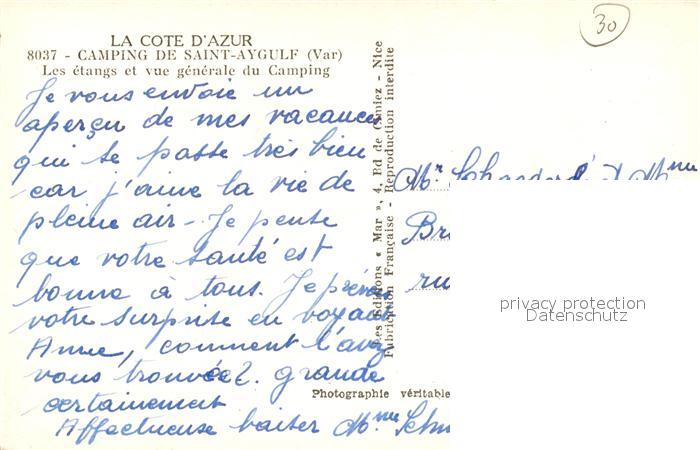 30
LA COTE D'AZUR
8037 - CAMPING DE SAINT-AYGULF (Var)
Les étangs et vue générale du Camping
Je vous envoie un
aperçu de mes vacances
qui se passe très bien
car j'aime la vie de
pleine air - Je pense
que votre santé est
bonne à tous. Je
votre surprise en voyant
Anne, comment l'avez
vous trouvée?. grande
certainement
Affectueuse baiser Mme
Les Editions « Mar », 4, Bd de Cimiez - Nice
Fabrication Française - Reproduction interdite
Mr. et Mme
Br
ru
privacy protection
Datenschutz
Photographie véritable